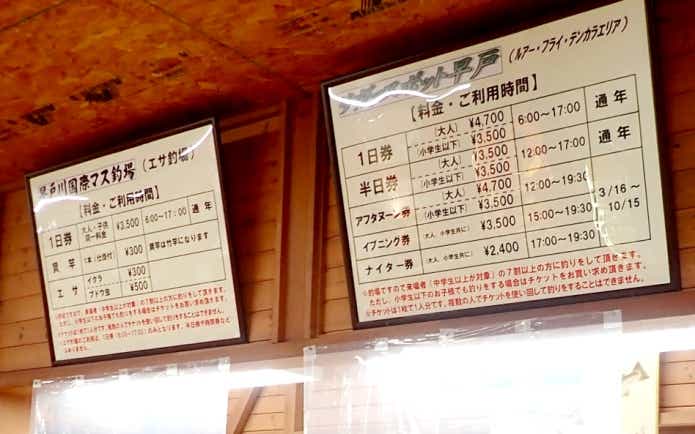 早戸川国際マス釣場 (エサ釣場)
【料金・ご利用時間】
1日券 大人・子供 同一料金 ¥3,500 6:00~17:00 通年
貸竿 1本(仕掛付) ¥300 貸竿は竹竿になります
エサ イクラ ¥300
ブドウ虫 ¥500
早戸 (ルアー・フライ・テンカラエリア)
【料金・ご利用時間】
1日券 (大人) ¥4,700 6:00~17:00 通年
(小学生以下) ¥3,500
半日券 (大人) ¥3,500 12:00~17:00 通年
(小学生以下) ¥3,500
アフタヌーン券 (大人) ¥4,700 12:00~19:30 3/16~10/15
(小学生以下) ¥3,500
イブニング券 (大人 小学生共に) ¥3,500 15:00~19:30
ナイター券 (大人 小学生共に) ¥2,400 17:00~19:30
※釣場ですので来場者(中学生以上が対象)の7割以上の方に釣りをして頂きます。
ただし、小学生以下のお子様でも釣りをする場合はチケットをお買い求め頂きます。
※チケットは1枚で1人分です。複数の人でチケットを使い回して釣りをすることはできません。